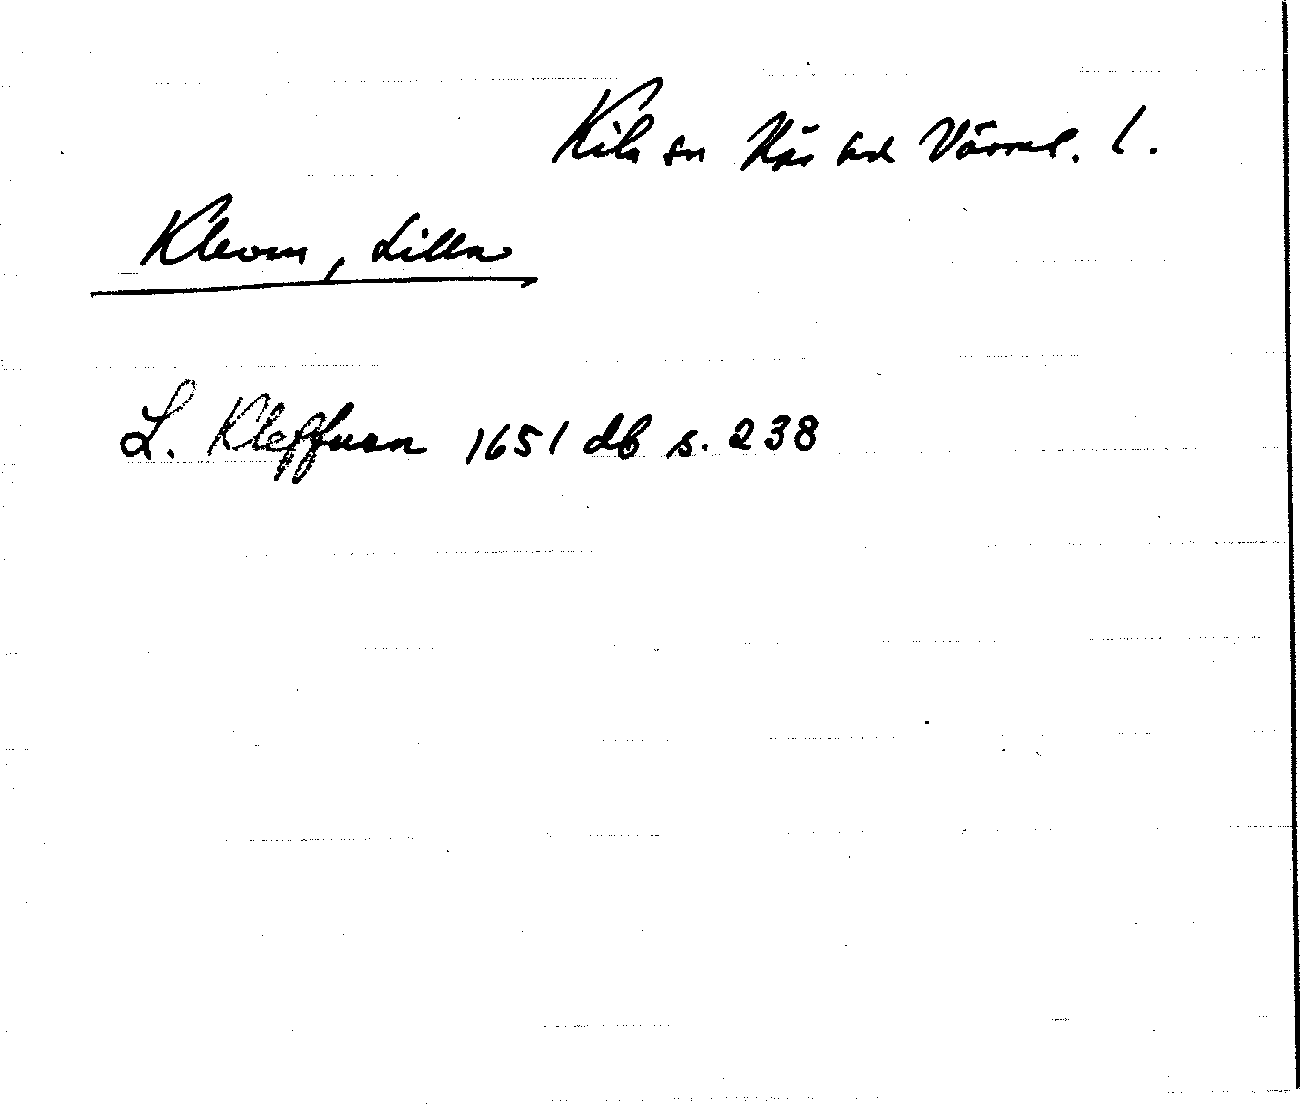 Kila sn Näs hd Värml. l.
Klevan, Lilla
L. Kleffuan 1651 db s. 238